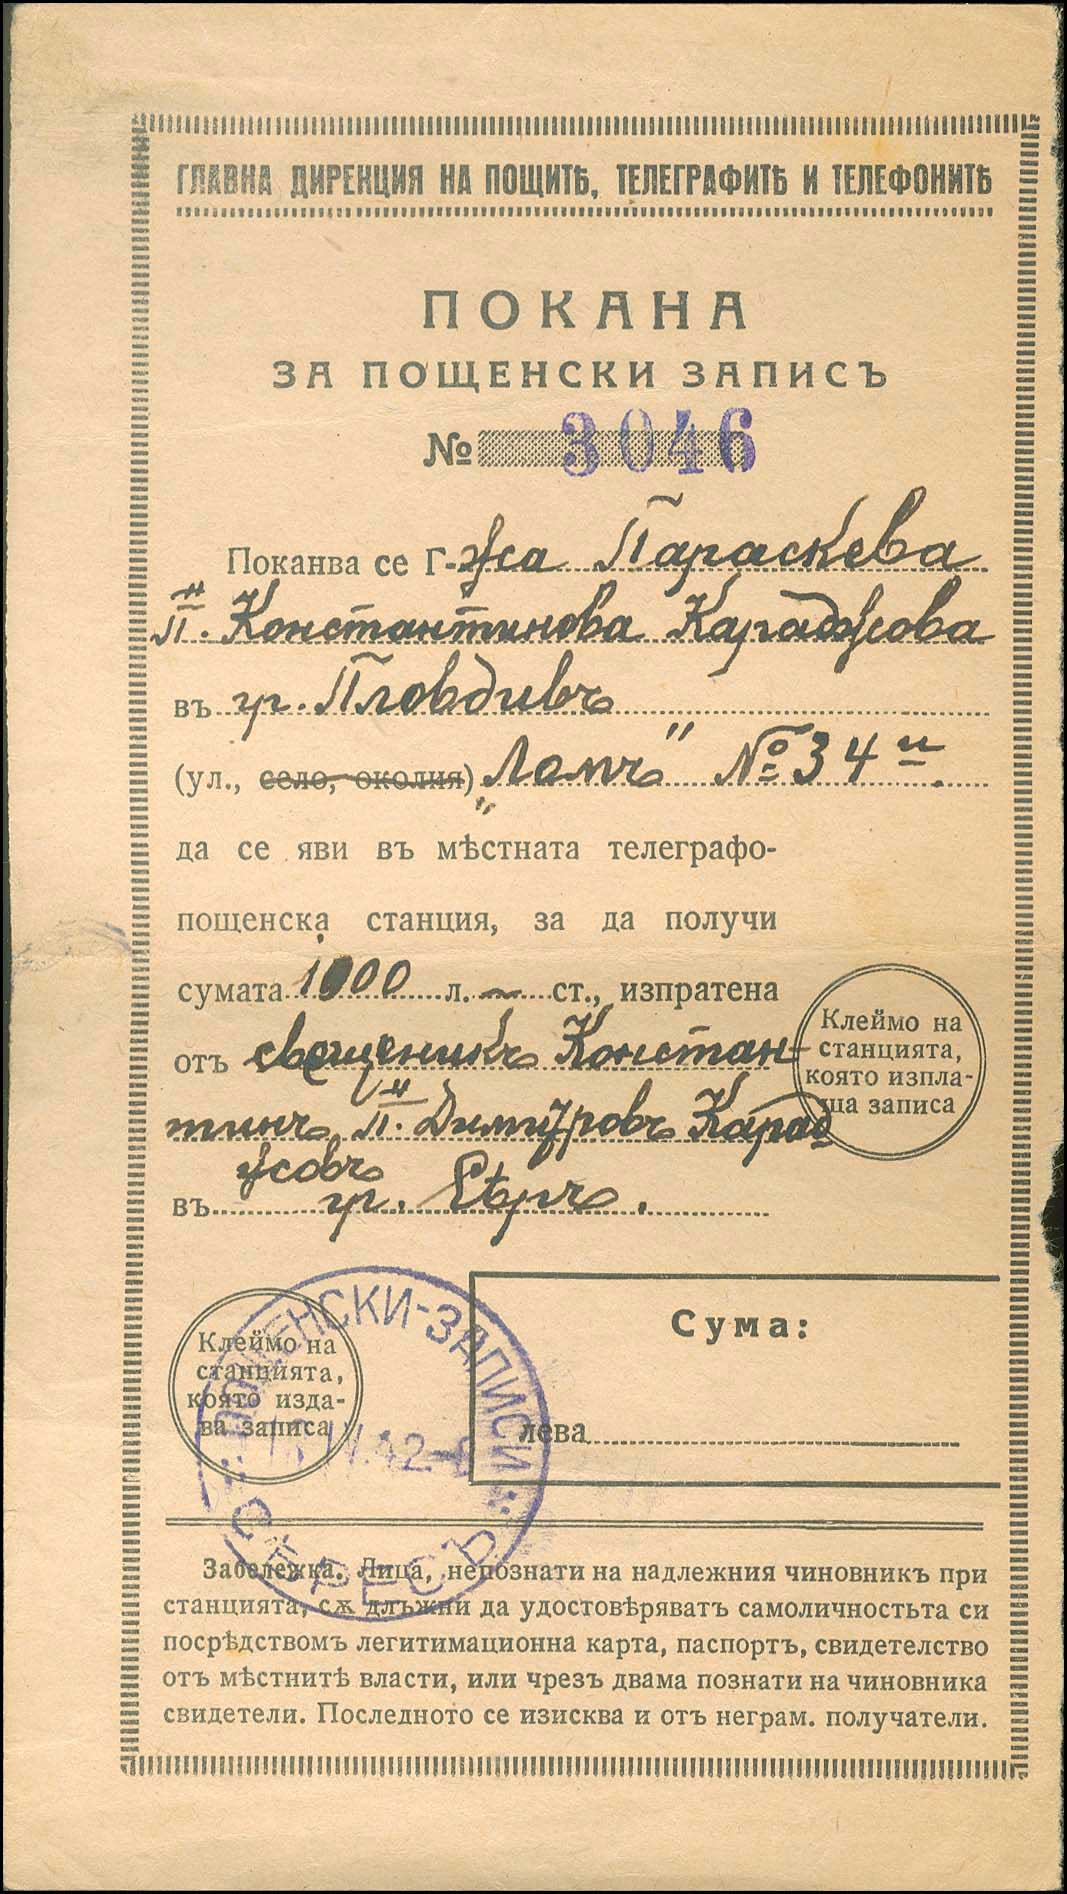 ГЛАВНА ДИРЕКЦИЯ НА ПОЩИТѢ, ТЕЛЕГРАФИТѢ И ТЕЛЕФОНИТѢ
ПОКАНА
ЗА ПОЩЕНСКИ ЗАПИСЪ
№ 3046
Поканва се Г-жа Параскева
п. Константинова Караджова
въ гр. Пловдивъ
(ул., село, околия) „Ломъ" № 34
да се яви въ мѣстната телеграфо-
пощенска станция, за да получи
сумата 1000 л. — ст., изпратена
отъ свещеникъ Констан-
тинъ п. Димитровъ Карад
жовъ
въ гр. Сѣръ.
Клеймо на
станцията,
която изпла-
ща записа
Клеймо на
станцията,
която изда-
ва записа
ПОЩЕНСКИ-ЗАПИСИ
IV.42
СѢРЕСЪ
Сума:
лева
Забележка. Лица, непознати на надлежния чиновникъ при
станцията, сѫ длъжни да удостовѣряватъ самоличностьта си
посрѣдствомъ легитимационна карта, паспортъ, свидетелство
отъ мѣстнитѣ власти, или чрезъ двама познати на чиновника
свидетели. Последното се изисква и отъ неграм. получатели.